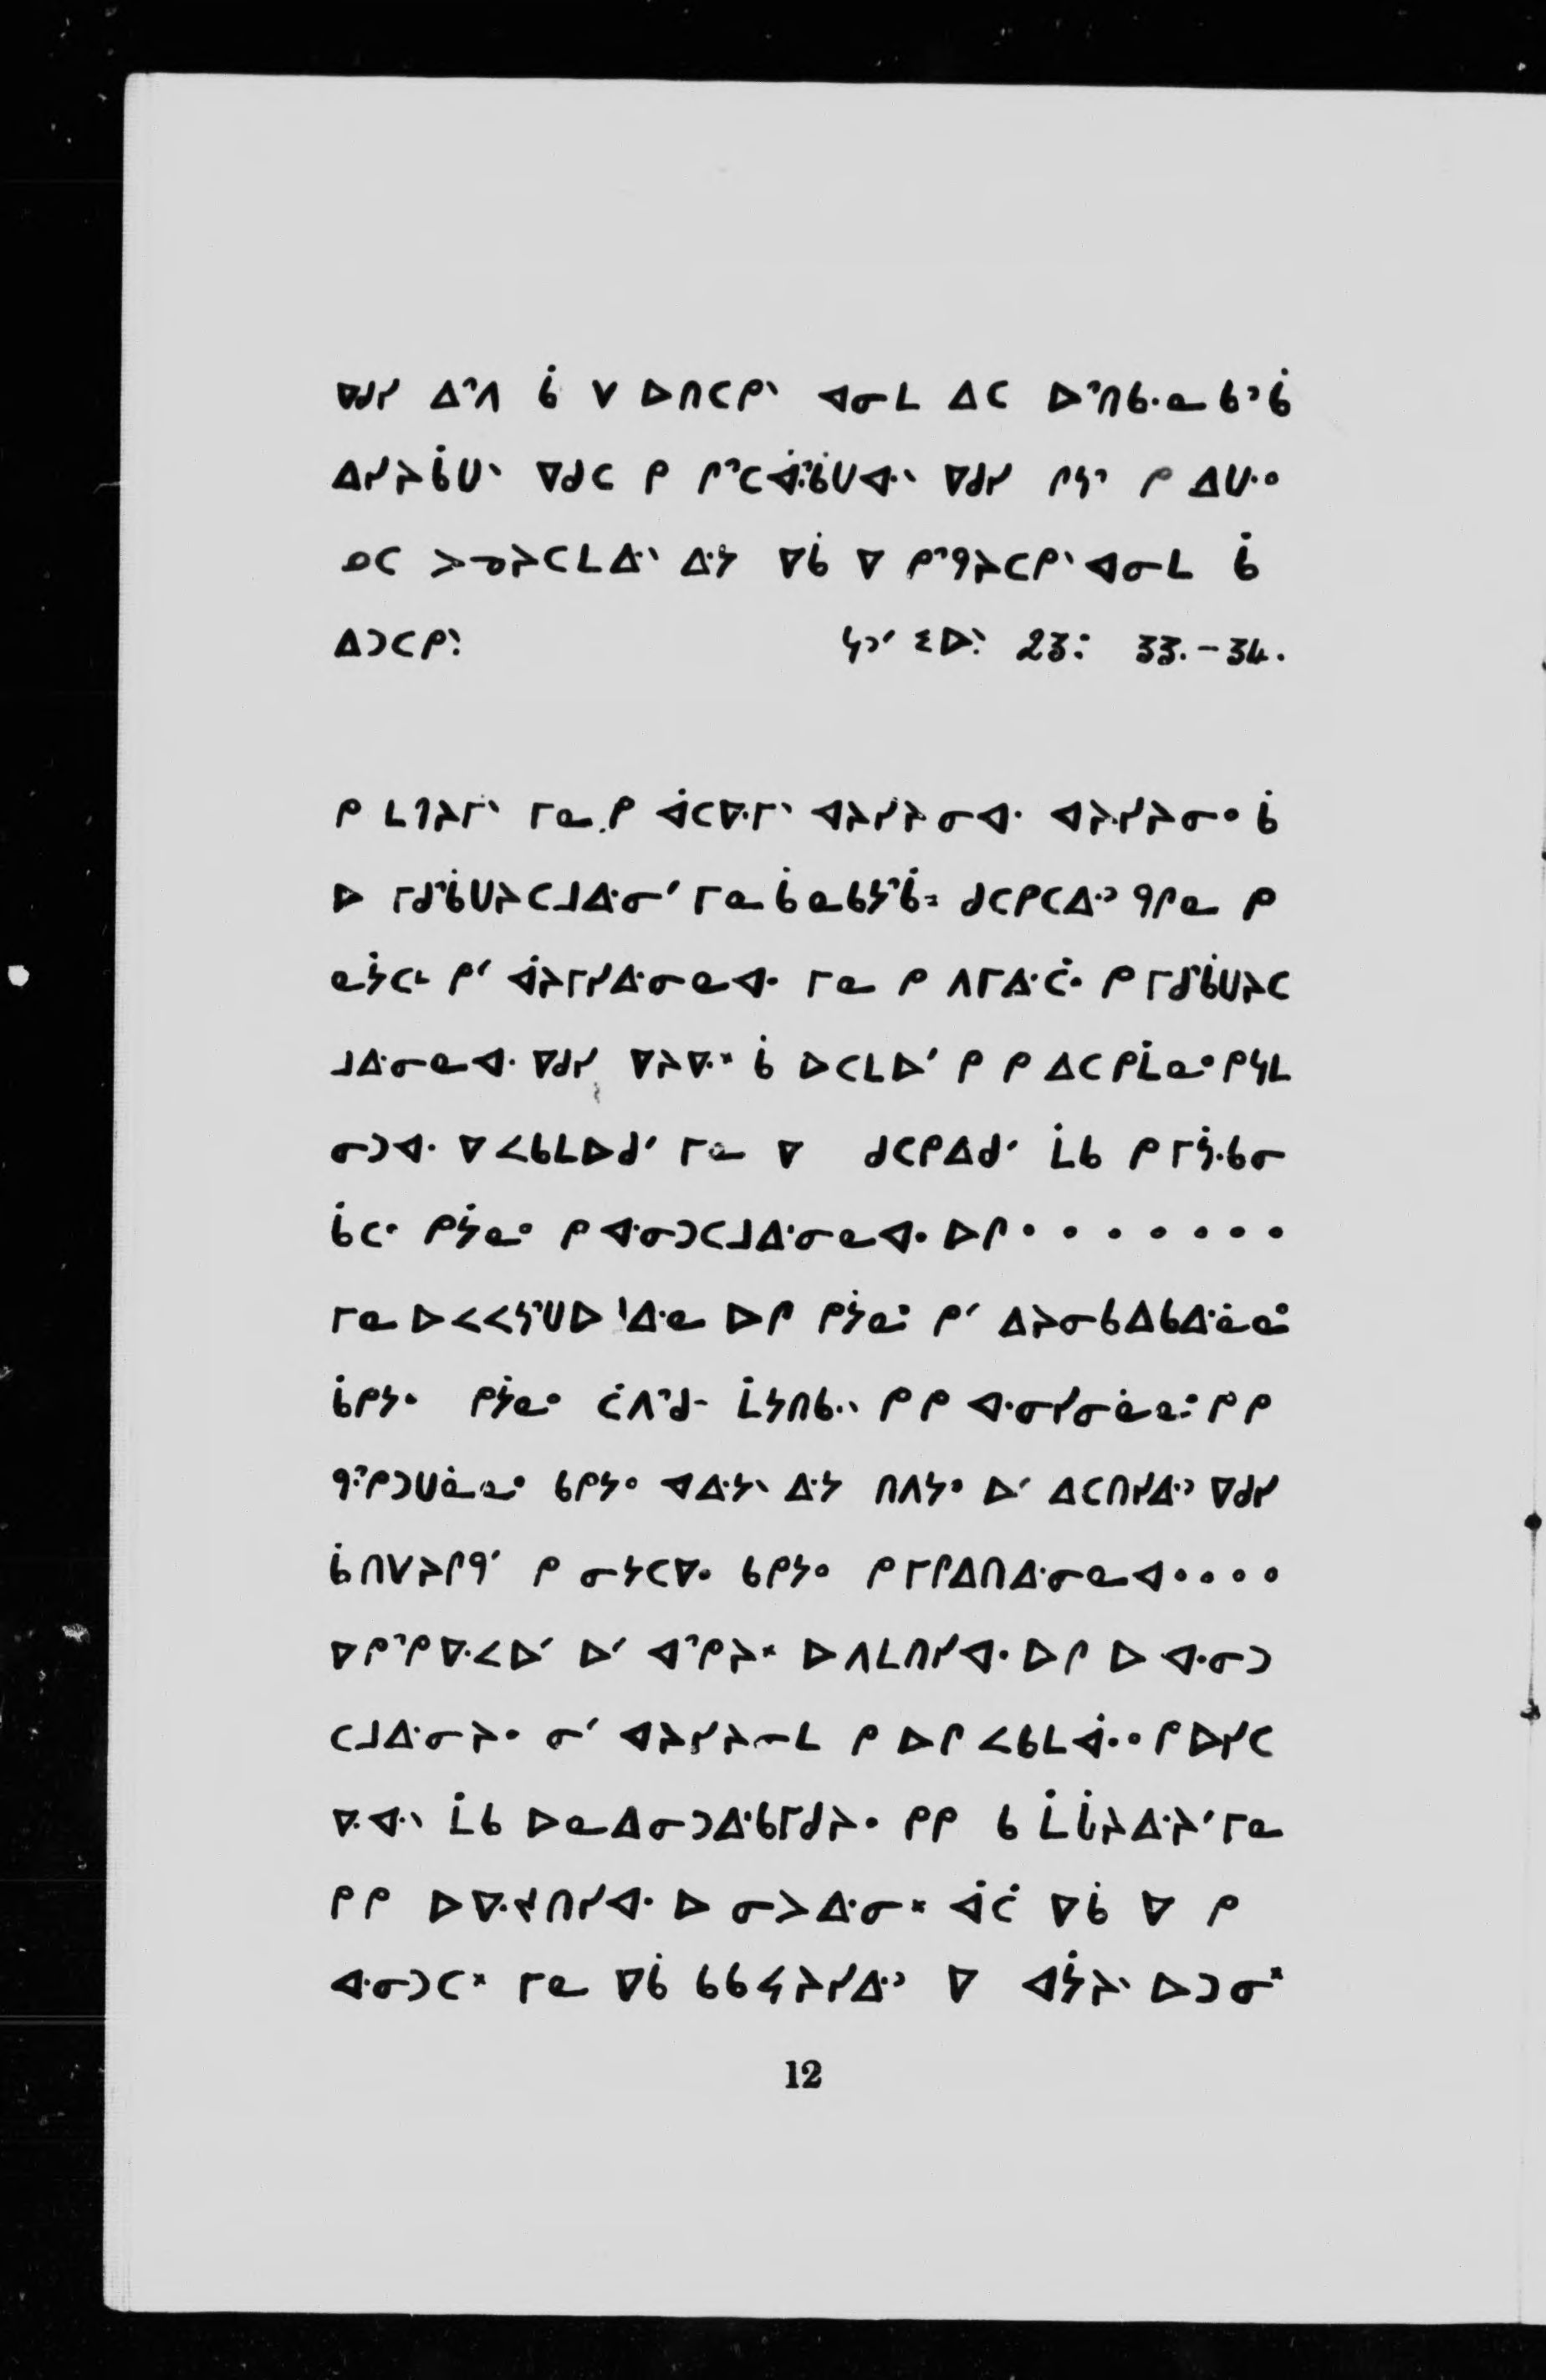 ᐁᑯᓯ ᐃᐢᐱ ᑳ ᐯ ᐅᑎᑕᑭᐠ ᐊᓂᒪ ᐃᑕ ᐅᐢᑎᑲᐧᓇᑲᐣᑳ
ᐃᓯᔨᑳᑌᐠ ᐁᑯᑕ ᑭ ᒋᐢᑕᐚᐢᑳᑌᐊᐧᐠ ᐁᑯᓯ ᒋᓴᐣ ᑭ ᐃᑌᐧᐤ
ᓄᑕ ᐳᓀᔨᑕᒪᐃᐧᐠ ᐃᐧᔭ ᐁᑳ ᐁ ᑭᐢᑫᔨᑕᑭᐠ ᐊᓂᒪ ᑳ
ᐃᑐᑕᑭᐠ᛬ 23: 33.-34.
ᑭ ᒪᒉᔨᒥᐠ ᒥᓇ ᑭ ᐋᑕᐁᐧᒥᐠ ᐊᔨᓯᔨᓂᐊᐧ ᐊᔨᓯᔨᓂᐤ ᑳ
ᐅ ᒥᑯᐢᑳᑌᔨᑕᒧᐃᐧᓂᐟ ᒥᓇ ᑳ ᓇᑲᔮᐢᑳ᙮ ᑯᑕᑭᑕᐃᐧᐣ ᑫᒋᓇ ᑭ
ᓇᔮᑕᒼ ᑭᐟ ᐋᔨᒥᓯᐃᐧᓂᓇᐊᐧ ᒥᓇ ᑭ ᐱᒥᐃᐧᑖᐤ ᑭ ᒥᑯᐢᑳᑌᔨᑕ
ᒧᐃᐧᓂᓇᐊᐧ ᐁᑯᓯ ᐁᔨᐁᐧᕽ ᑳ ᐅᑕᒪᐅᐟ ᑭ ᑭ ᐃᑕᑭᒫᓇᐤ ᑭᓴᒪ
ᓂᑐᐊᐧ ᐁ ᐸᑲᒪᐅᑯᐟ ᒥᓇ ᐁ ᑯᑕᑭᐃᑯᐟ ᒫᑲ ᑭ ᒥᔮᐧᑲᓂ
ᑳᑕᐤ ᑭᔮᓇᐤ ᑭ ᐊᐧᓂᑐᑕᒧᐃᐧᓂᓇᐊᐧ ᐅᒋ........
ᒥᓇ ᐅᐸᐸᓴᐢᑌᐅᐃᐧᓇ ᐅᒋ ᑭᔮᓇᐤ ᑭᐟ ᐃᔨᓂᑲᐃᑲᐃᐧᓈᓇᐤ
ᑳᑭᔭᐤ ᑭᔮᓇᐤ ᑖᐱᐢᑯᐨ ᒫᔭᑎᑲᐧᐠ ᑭ ᑭ ᐊᐧᓂᓯᓂᓈᓇᐤ ᑭ ᑭ
ᑫᐧᐢᑭᑐᑌᓈᓇᐤ ᑲᑭᔭᐤ ᐊᐃᐧᔭᐠ ᐃᐧᔭ ᑎᐱᔭᐤ ᐅᐟ ᐃᑕᑎᓯᐃᐧᐣ ᐁᑯᓯ
ᑳᑎᐯᔨᒋᑫᐟ ᑭ ᓂᔭᑕᐁᐧᐤ ᑲᑭᔭᐤ ᑭᒥᒋᐃᑎᐃᐧᓂᓇᐊᐧ....
ᐁᑭᐢᑭᐁᐧᐸᐅᐟ ᐅᐟ ᐊᐢᑭᔨᕽ ᐅᐱᒪᑎᓯᐊᐧ ᐅᒋ ᐅ ᐊᐧᓂᑐ
ᑕᒧᐃᐧᓂᔨᐤ ᓂᐟ ᐊᔨᓯᔨᓂᒪ ᑭ ᐅᒋ ᐸᑲᒪᐚᐤ ᑭᐅᓯᑕ
ᐁᐧᐊᐧᐠ ᒫᑲ ᐅᓇᐃᓂᑐᐃᐧᑲᒥᑯᔨᐤ ᑭᑭ ᑲ ᒫᒫᔨᐃᐧᔨᐟ ᒥᓇ
ᑭᑭ ᐅᐁᐧᔪᑎᓯᐊᐧ ᐅ ᓂᐳᐃᐧᓂᕽ ᐋᑖ ᐁᑳ ᐁ ᑭ
ᐊᐧᓂᑐᑕᕽ ᒥᓇ ᐁᑳ ᑲᑲᔦᔨᓯᐃᐧᐣ ᐁ ᐊᔮᔨᐠ ᐅᑐᓂᕽ
12